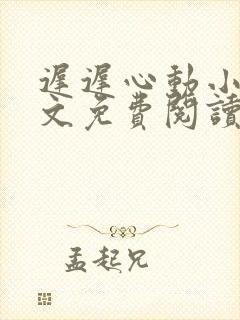 遲遲心動小
文免費閱讀
孟起兄